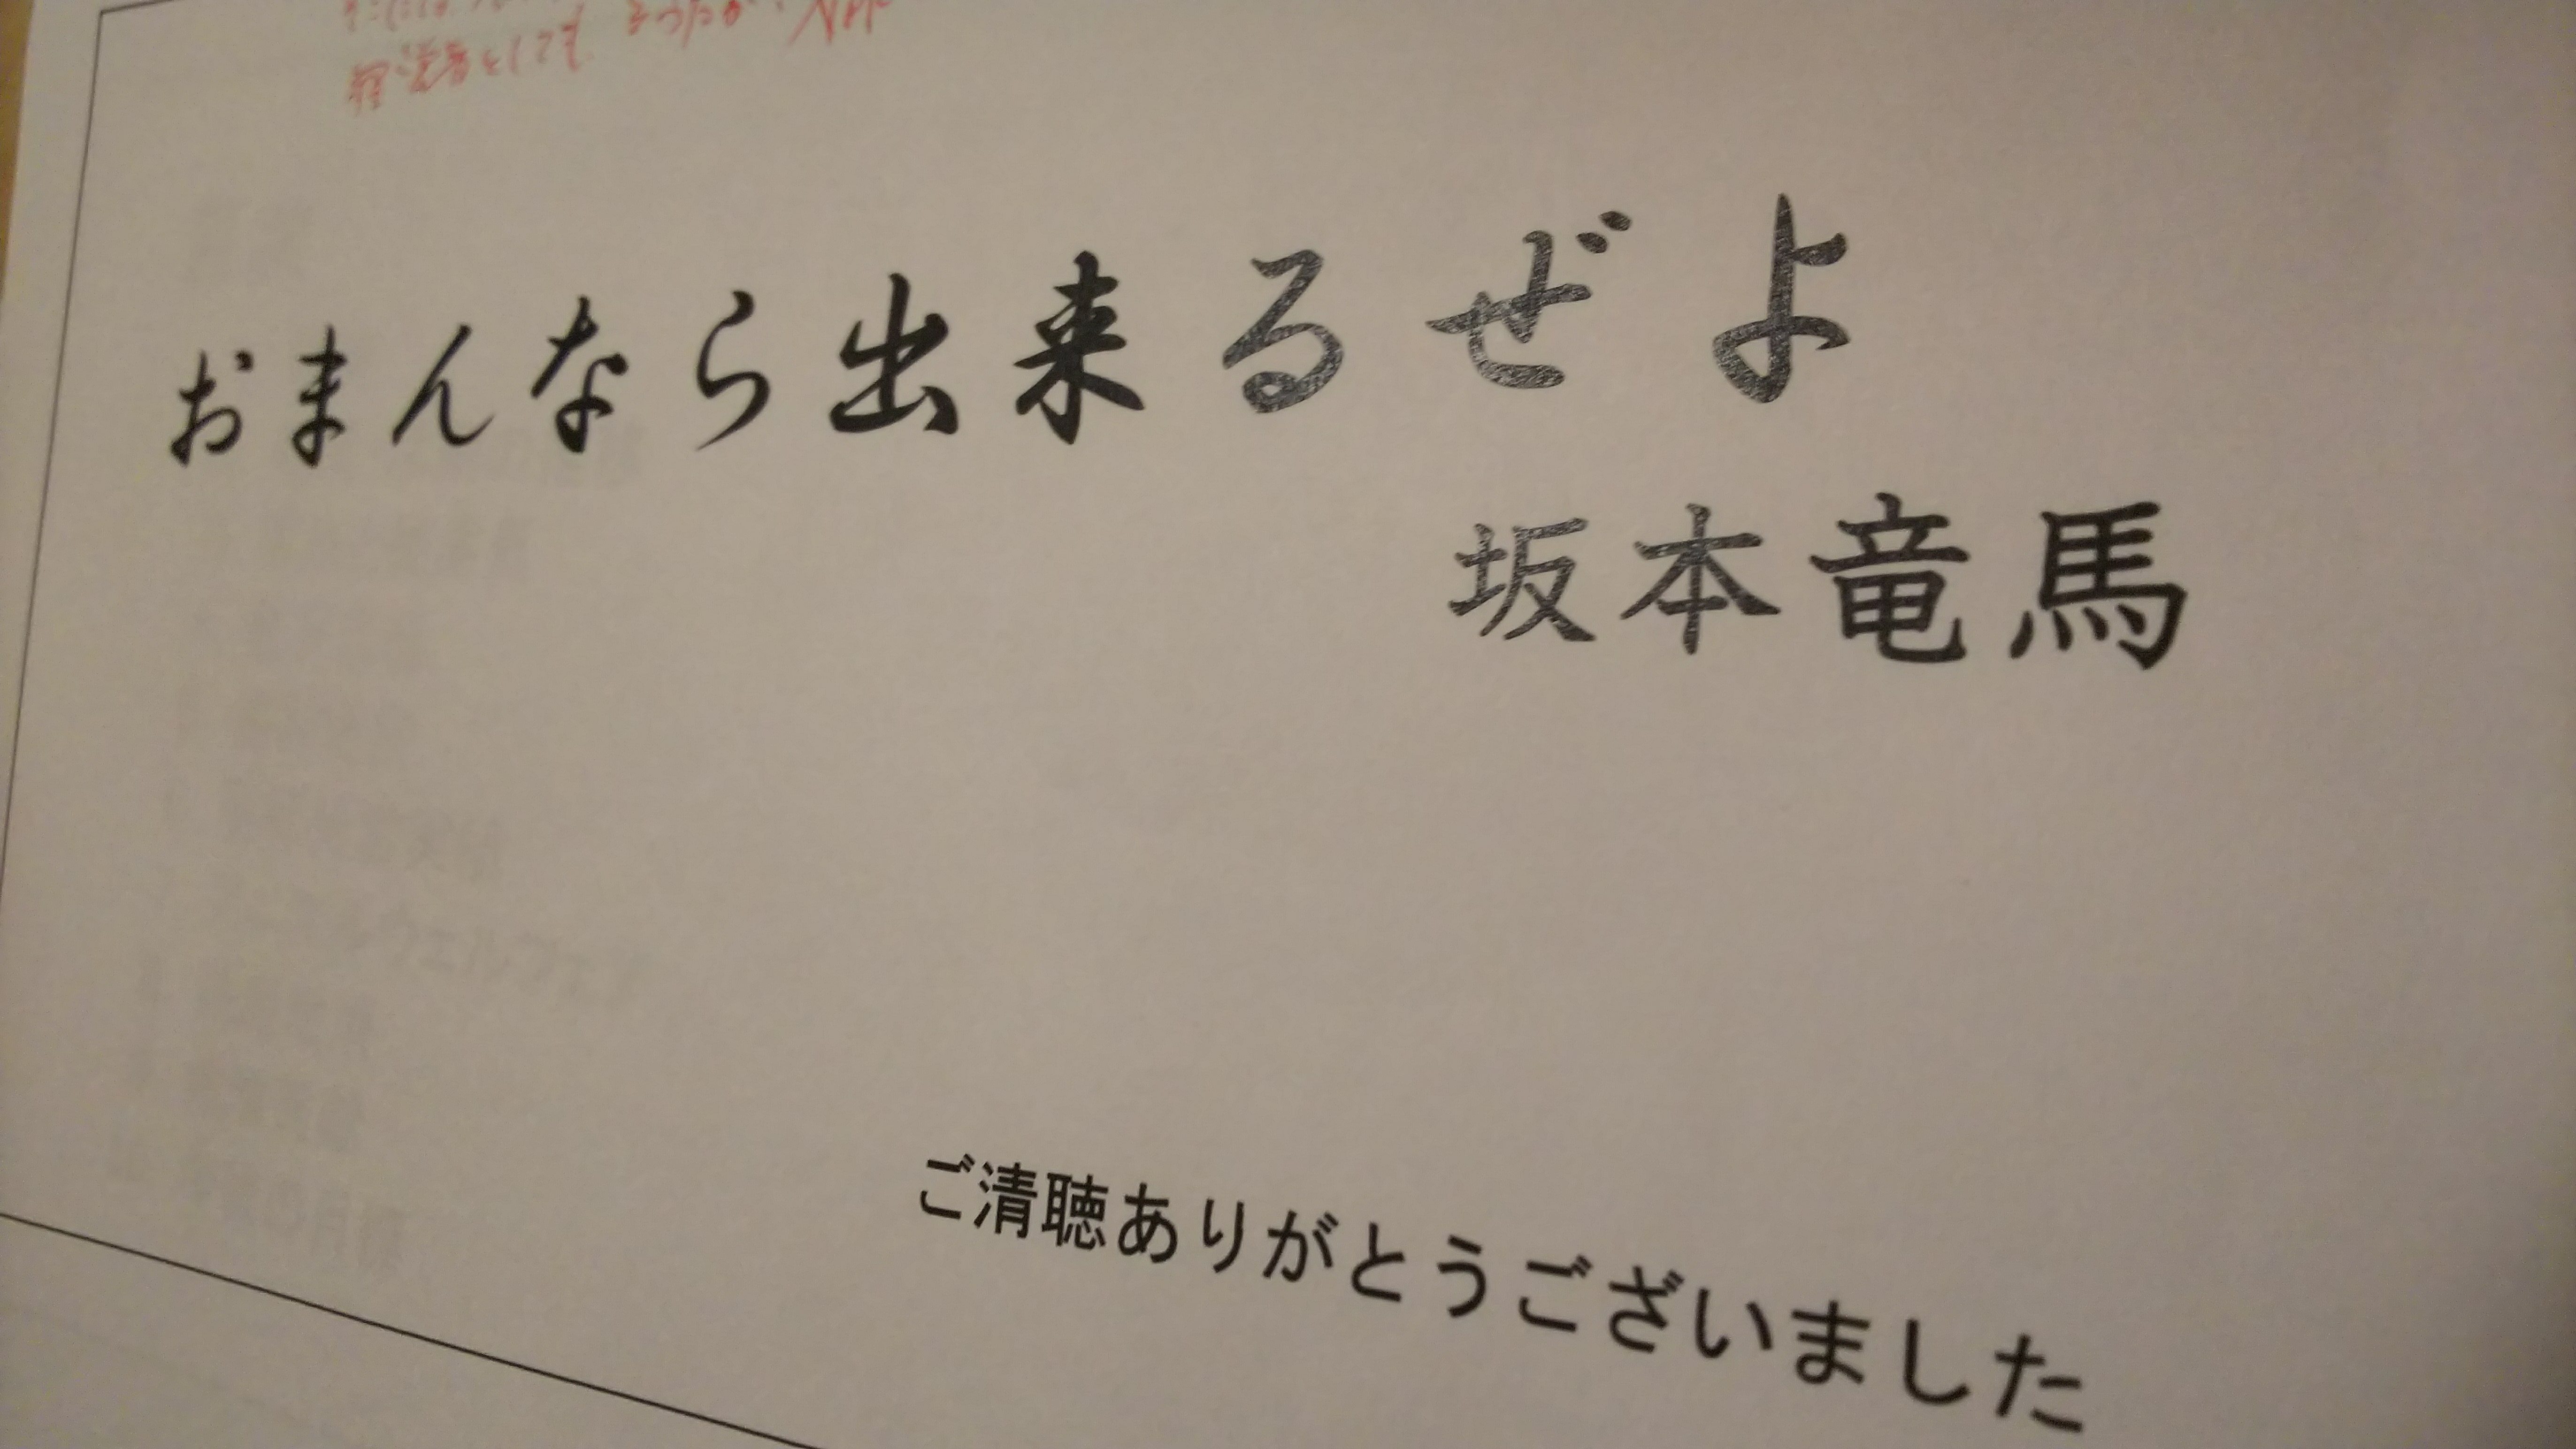 おまんなら出来るぜよ
坂本竜馬
ご清聴ありがとうございました